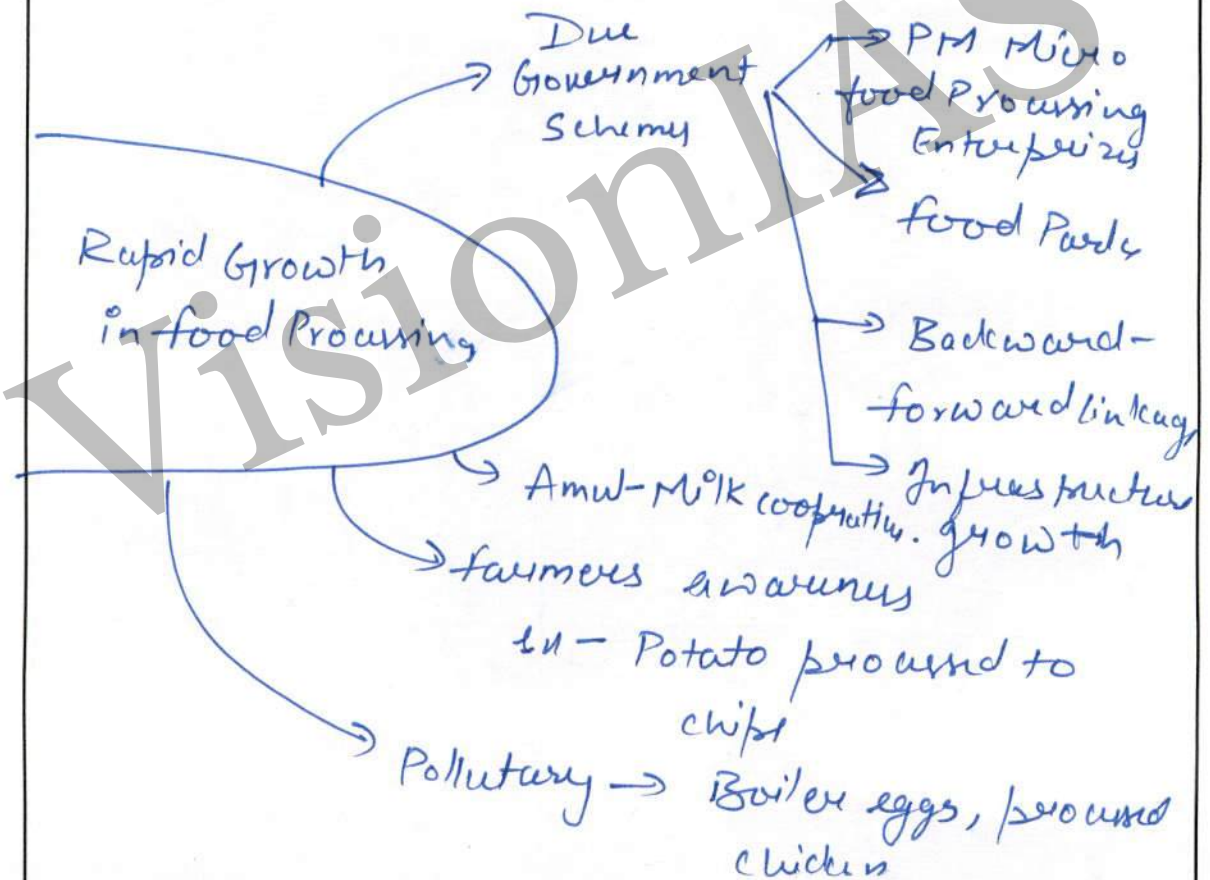 Rapid Growth
in food Processing
Due
Government
Schemes
PM Micro
food Processing
Enterprizes
food Parks
Backward-
forward linkages
Infrastructure
growth
Amul-Milk cooperative.
farmers awareness
in - Potato processed to
chips
Pollutary → Boiler eggs, processed
chicken
VisionIAS